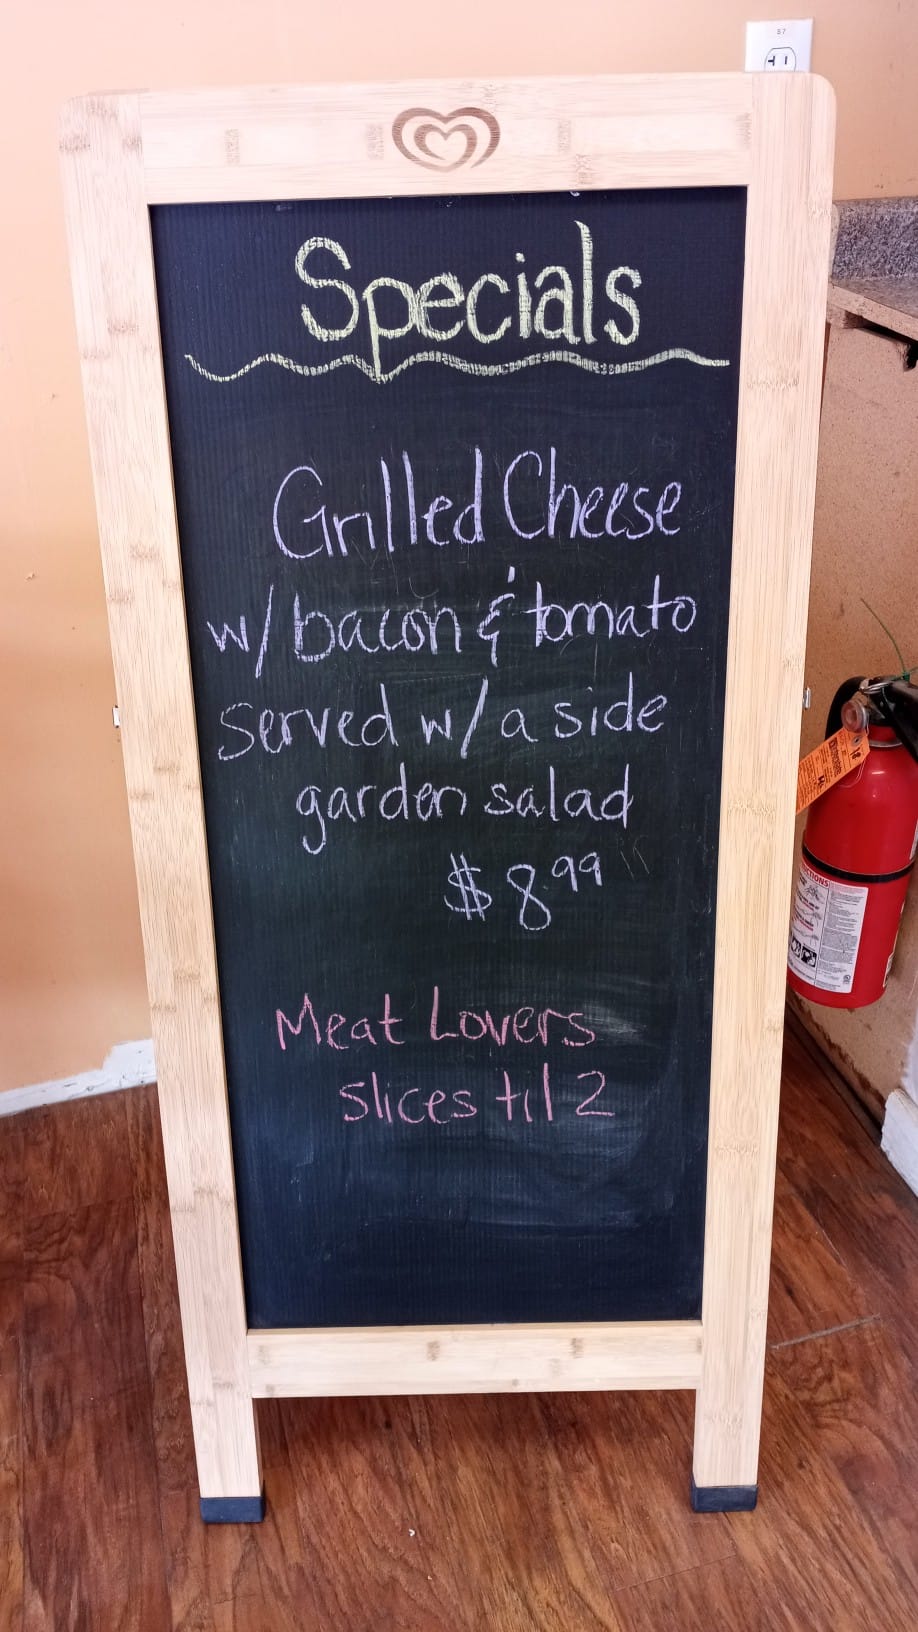 57
Specials
Grilled Cheese
w/ bacon & tomato
served w/ a side
garden salad
$8.99
Meat Lovers
slices til 2